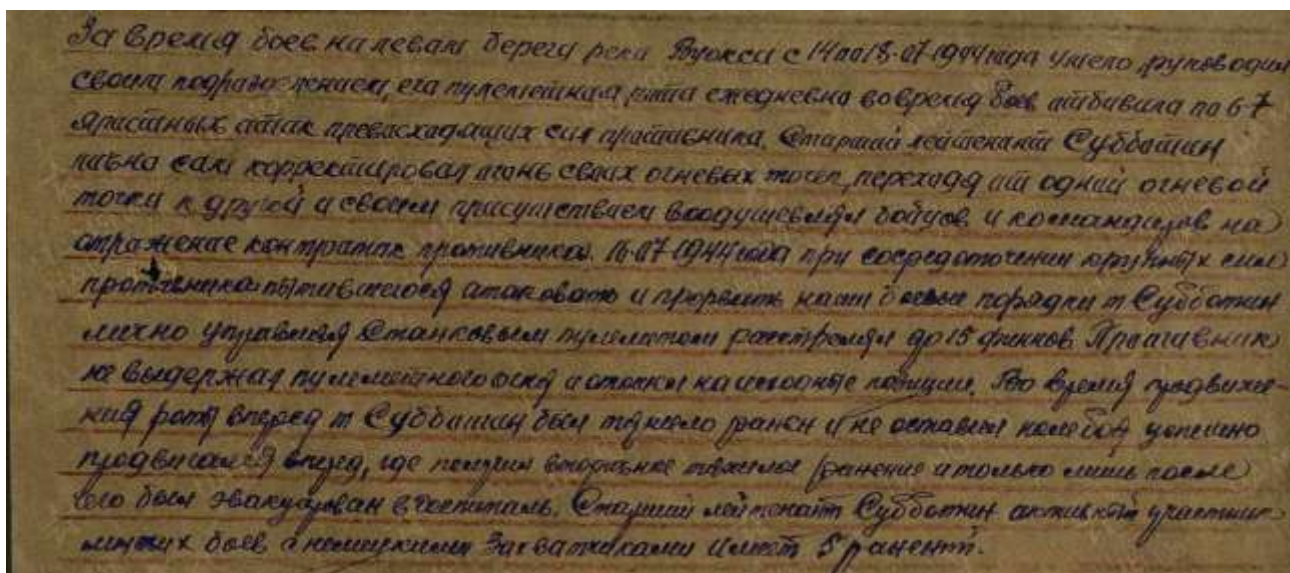 За время боев на левам берегу реки Вуокси с 14 по 18-07-1944 года умело руководил
своим подразделением, его пулеметная рота ежедневно во время боев отбивала по 6-7
яростных аттак превосходящих сил противника. Старший лейтенант Субботин
лично сам корректировал огонь своих огневых точек, переходя от одной огневой
точки к другой и своим присутствием воодушевлял бойцов и командиров на
отражение контратак противника. 16-07-1944 года при сосредоточении крупных сил
противника пытавшегося атаковать и прорвать наши боевые порядки т Субботин
лично управляя Станковым пулеметом расстрелял до 15 финнов. Противник
не выдержал пулеметного огня и отошел на исходные позиции. Во время продвиже-
ния роты вперед т Субботин был тяжело ранен и не оставил поле боя успешно
продвигался вперед, где получил тяжелое ранение и только лишь после
его был эвакуирован в госпиталь. Старший лейтенант Субботин активный участник
многих боев с немецкими Захватчиками имеет 5 ранений.